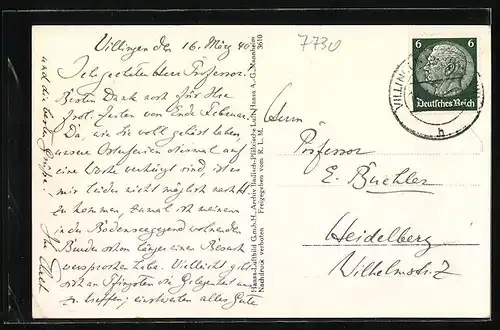 Villingen den 16. März 40.
Sehr geehrter Herr Professor!
Besten Dank noch für Ihre
frdl. Zeilen von Ende Februar.
Da, wie Sie wohl gehört haben,
unsere Osterferien diesmal auf
eine Woche verkürzt sind, ist es
mir leider nicht möglich nach H.
zu kommen, zumal ich meinem
in der Bodenseegegend wohnenden
Bruder schon längst einen Besuch
versprochen habe. Vielleicht gibt
sich an Pfingsten die Gelegenheit uns
zu treffen; einstweilen alles Gute
und die besten Grüße!
Ihr
Hansa-Luftbild G.m.b.H. Archiv Badisch-Pfälzische Luft-Hansa A.-G. Mannheim
Nachdruck verboten Freigegeben vom R. L. M. 3610
7730
6 6
Deutsches Reich
VILLING
h
Herrn
Professor
E. Büchler
Heidelberg
Wilhelmstr. 2